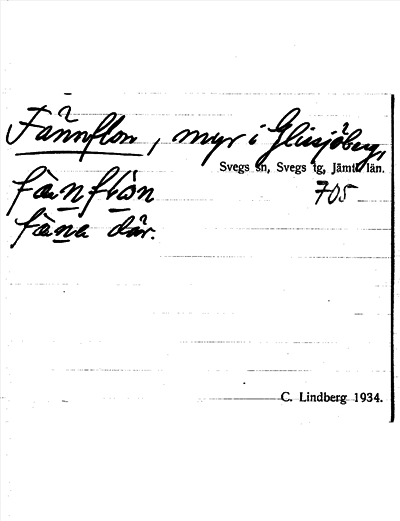 Fännflon, myr i Glissjöberg,
Svegs sn, Svegs tg, Jämtl. län.
705
där.
C. Lindberg 1934.